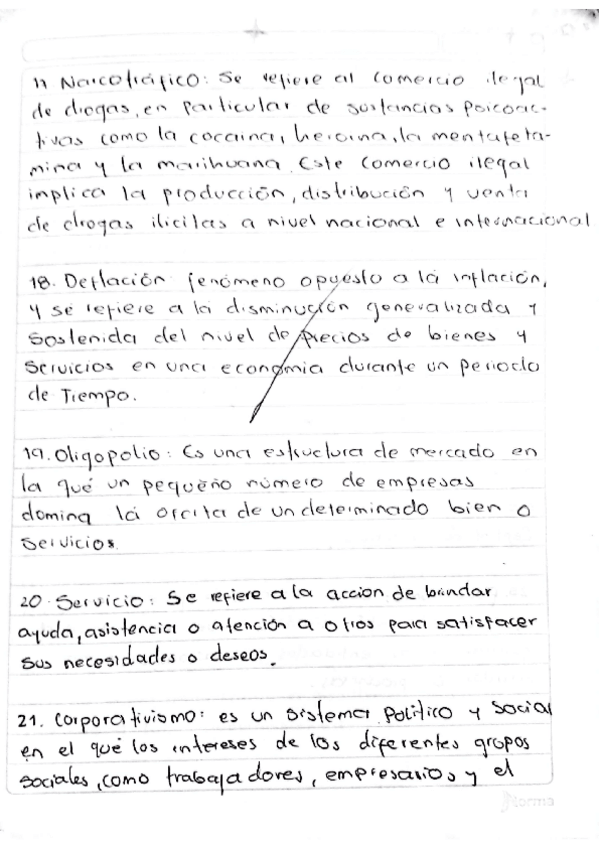 17 Narcotráfico: Se refiere al comercio ilegal
de drogas, en particular de sustancias psicoac-
tivas como la cocaina, heroina, la mentafeta-
mina y la marihuana. Este comercio ilegal
implica la producción, distribución y venta
de drogas ilicitas a nivel nacional e internacional
18. Deflación fenómeno opuesto a la inflación,
y se refiere a la disminución generalizada y
Sostenida del nivel de precios de bienes y
Servicios en una economia durante un periodo
de Tiempo.
19. Oligopolio: Es una estructura de mercado en
la qué un pequeño número de empresas
domina la oferta de un determinado bien o
Servicios.
20. Servicio: Se refiere a la accion de brindar
ayuda, asistencia o atención a otros para satisfacer
Sus necesidades o deseos.
21. Corporativismo: es un sistema Político y Social
en el qué los intereses de los diferentes grupos
sociales, como trabajadores, empresarios y el
norma